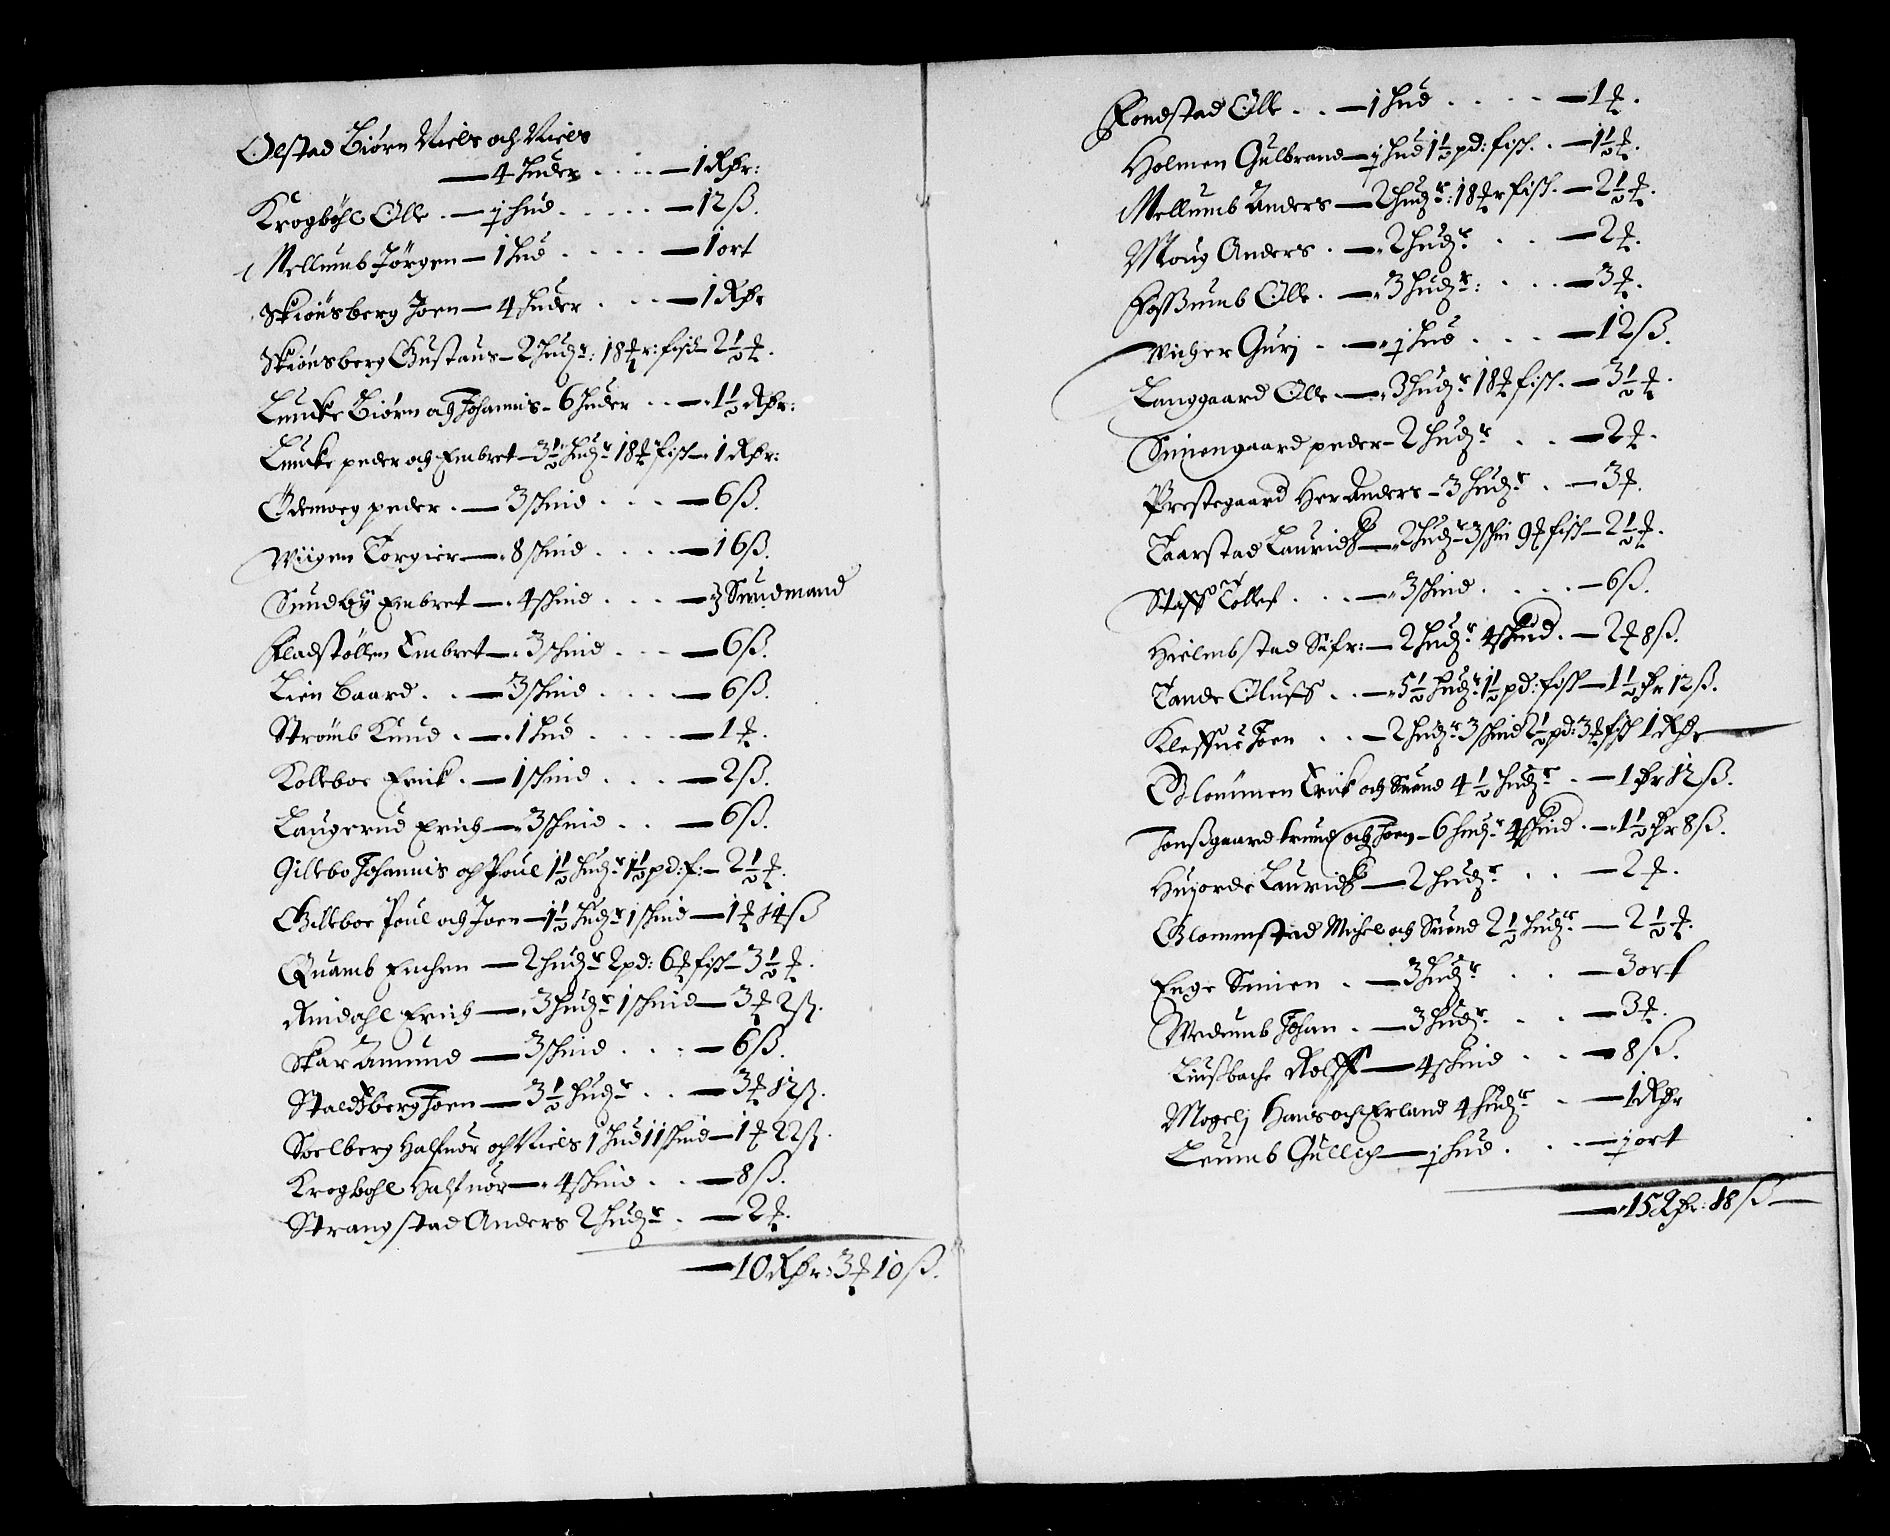 Olstad Biørn Niels och Niels
— 4 huder .... — 1 Rdr:
Krogbøhl Olle . — j hud ..... — 12 ß.
Mellumb Jørgen — 1 hud .... — 1 ort
Skiønsberg Joen — 4 huder ... — 1 Rdr
Skiønsberg Gustaus — 2 hudr: 18 ℔r: fisk — 2½ ℔.
Lunke Biørn och Johannis — 6 huder .. — 1½ Rdr:
Lunke peder och Embret — 3½ hudr 18 ℔r fisk — 1 Rdr:
Ødemorg peder . — 3 skind ... — 6 ß.
Wiigen Torgier — 8 skind .... — 16 ß.
Sundby Embret — 4 skind ... — Sundmand
Fladstøllen Embret — 3 skind ... — 6 ß.
Lien Baard .. — 3 skind .... — 6 ß.
Strømb Knud . — 1 hud .... — 1 ℔.
Kolleboe Erick . — 1 skind .... — 2 ß.
Laugerud Erich — 3 skind .. — 6 ß.
Gillebo Johannis och Poul 1½ hudr 1½ pd: f: — 2½ ℔.
Gilleboe Poul och Joen — 1½ hudr 1 skind — 1 ℔ 14 ß
Quamb Enchen — 2 hudr 2 pd: 6 ℔ fisk — 3½ ℔.
Rindahl Erich — 3 hudr 1 skind — 3 ℔ 2 ß.
Skar Amund — 3 skind ... — 6 ß.
Staldsberg Joen — 3½ hudr .. — 3 ℔ 12 ß.
Soelberg Halfuor och Niels 1 hud 11 skind — 1 ℔ 22 ß.
Krogbøhl Halfuor — 4 skind .. — 8 ß.
Strangstad Anders 2 hudr . — 2 ℔.
— 10 Rdr: 3 ℔ 10 ß.
Fondstad Olle .. — 1 hud .... — 1 ℔.
Holmen Gulbrand — j hud 1½ pd: fisk . — 1½ ℔.
Mellumb Anders — 2 hudr: 18 ℔r fisk — 2½ ℔.
Moug Anders . — 2 hudr .. — 2 ℔.
Fossumb Olle . — 3 hudr: ... — 3 ℔.
Wicher Gurj .. — j hud ... — 12 ß.
Langgaard Olle — 3 hudr 18 ℔ fisk — 3½ ℔.
Simengaard peder — 2 hudr .. — 2 ℔.
Prestegaard Her Anders — 3 hudr . — 3 ℔.
Taarstad Lauridz — 2 hudr 3 skin 9 ℔ fisk — 2½ ℔.
Staff Tollef ... — 3 skind .... — 6 ß.
Hielmbstad Sifr: — 2 hudr 4 skind . — 2 ℔ 8 ß.
Tande Oluff .. — 5½ hudr 1½ pd: fisk — 1½ dr 12 ß.
Kleffue Joen .. — 2 hudr 3 skind 2½ pd: 3 ℔ fisk 1 Rdr
Glommen Erick och Suend 4½ hudr . — 1 dr 12 ß.
Jonsgaard trund och Joen — 6 hudr 4 skind . — 1½ dr 8 ß.
Hujorde Lauridz — 2 hudr .. — 2 ℔.
Glommstad Michel och Suend 2½ hudr — 2½ ℔.
Enge Simen . — 3 hudr .. — 3 ort
Wedumb Johan . — 3 hudr .. — 3 ℔.
Liusbache Rolff — 4 skind .. — 8 ß.
Mogelj Hans och Erland 4 hudr . — 1 Rdr
Leumb Gullich — j hud ... — j ort
— 15 Rdr: 18 ß —